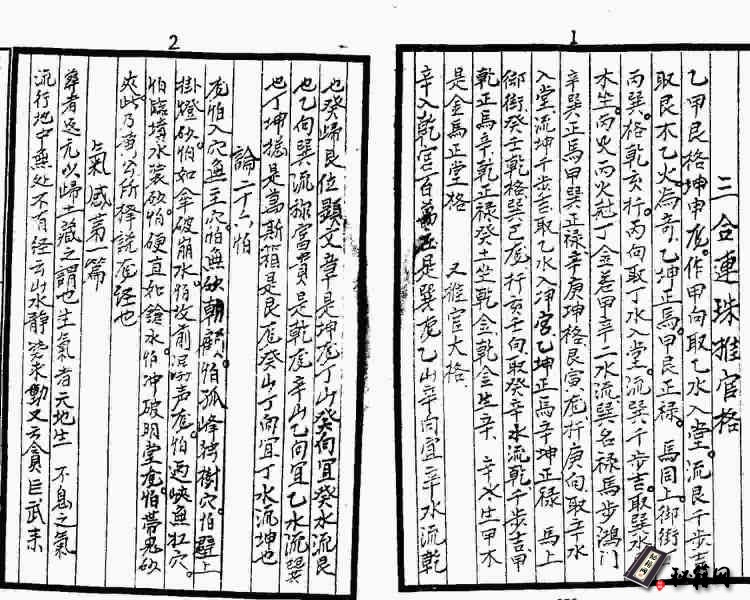 1
三合連珠推官格
乙甲艮格坤申龙。作甲向取乙水入堂。流艮千步吉
取艮木乙火為奇。乙坤正馬。甲艮正祿。馬同上御街
丙巽。格乾亥行。丙向取丁水入堂。流巽千步吉。取巽水
木生丙火丙火尅丁金養甲辛二水流巽名祿馬步鴻门
辛巽正馬甲巽正祿辛庚坤格艮寅龙行庚向取辛水
入堂流坤千步吉取乙水入宮乙坤正馬辛坤正祿 馬上
御街癸壬乾格巽巳龙行亥壬向取癸辛水流乾千步吉甲
乾正馬辛乾正祿癸土生乾金乾金生辛 辛水生甲木
是金馬正堂格 又推官大格
辛入乾宮百萬庄是巽龙乙山辛向宜辛水流乾
2
也癸歸艮位顯文章是坤龙丁山癸向宜癸水流艮
也乙向巽流称富貴是乾龙辛山乙向宜乙水流巽
也丁坤揔是萬斯箱是艮龙癸山丁向宜丁水流坤也
論二十六怕
龙怕入穴無主穴怕無砂朝 怕孤峰独樹穴怕壁上
掛燈砂怕如拿破崩水怕坟前 声龙怕 峽無扛穴。
怕臨墳水裳砂怕硬直如鎗水怕冲破明堂龙怕帶鬼砂
也此乃 公所擇説龙經也
氣感苐一篇
葬者返元以歸土藏之謂也生氣者元地生 不息之氣
流行地中無处不有经云山水静 來動又云貪巨武來
秘籍网